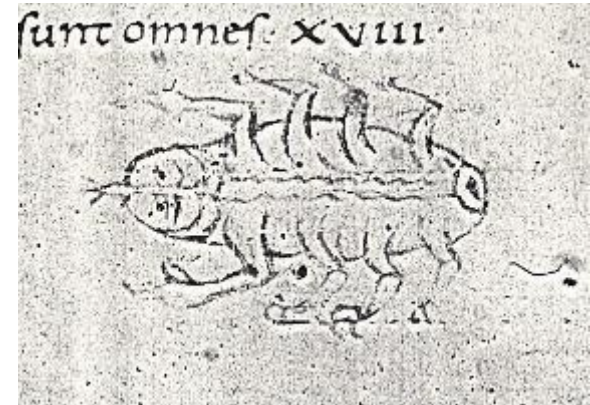 sunt omnes· XVIII·